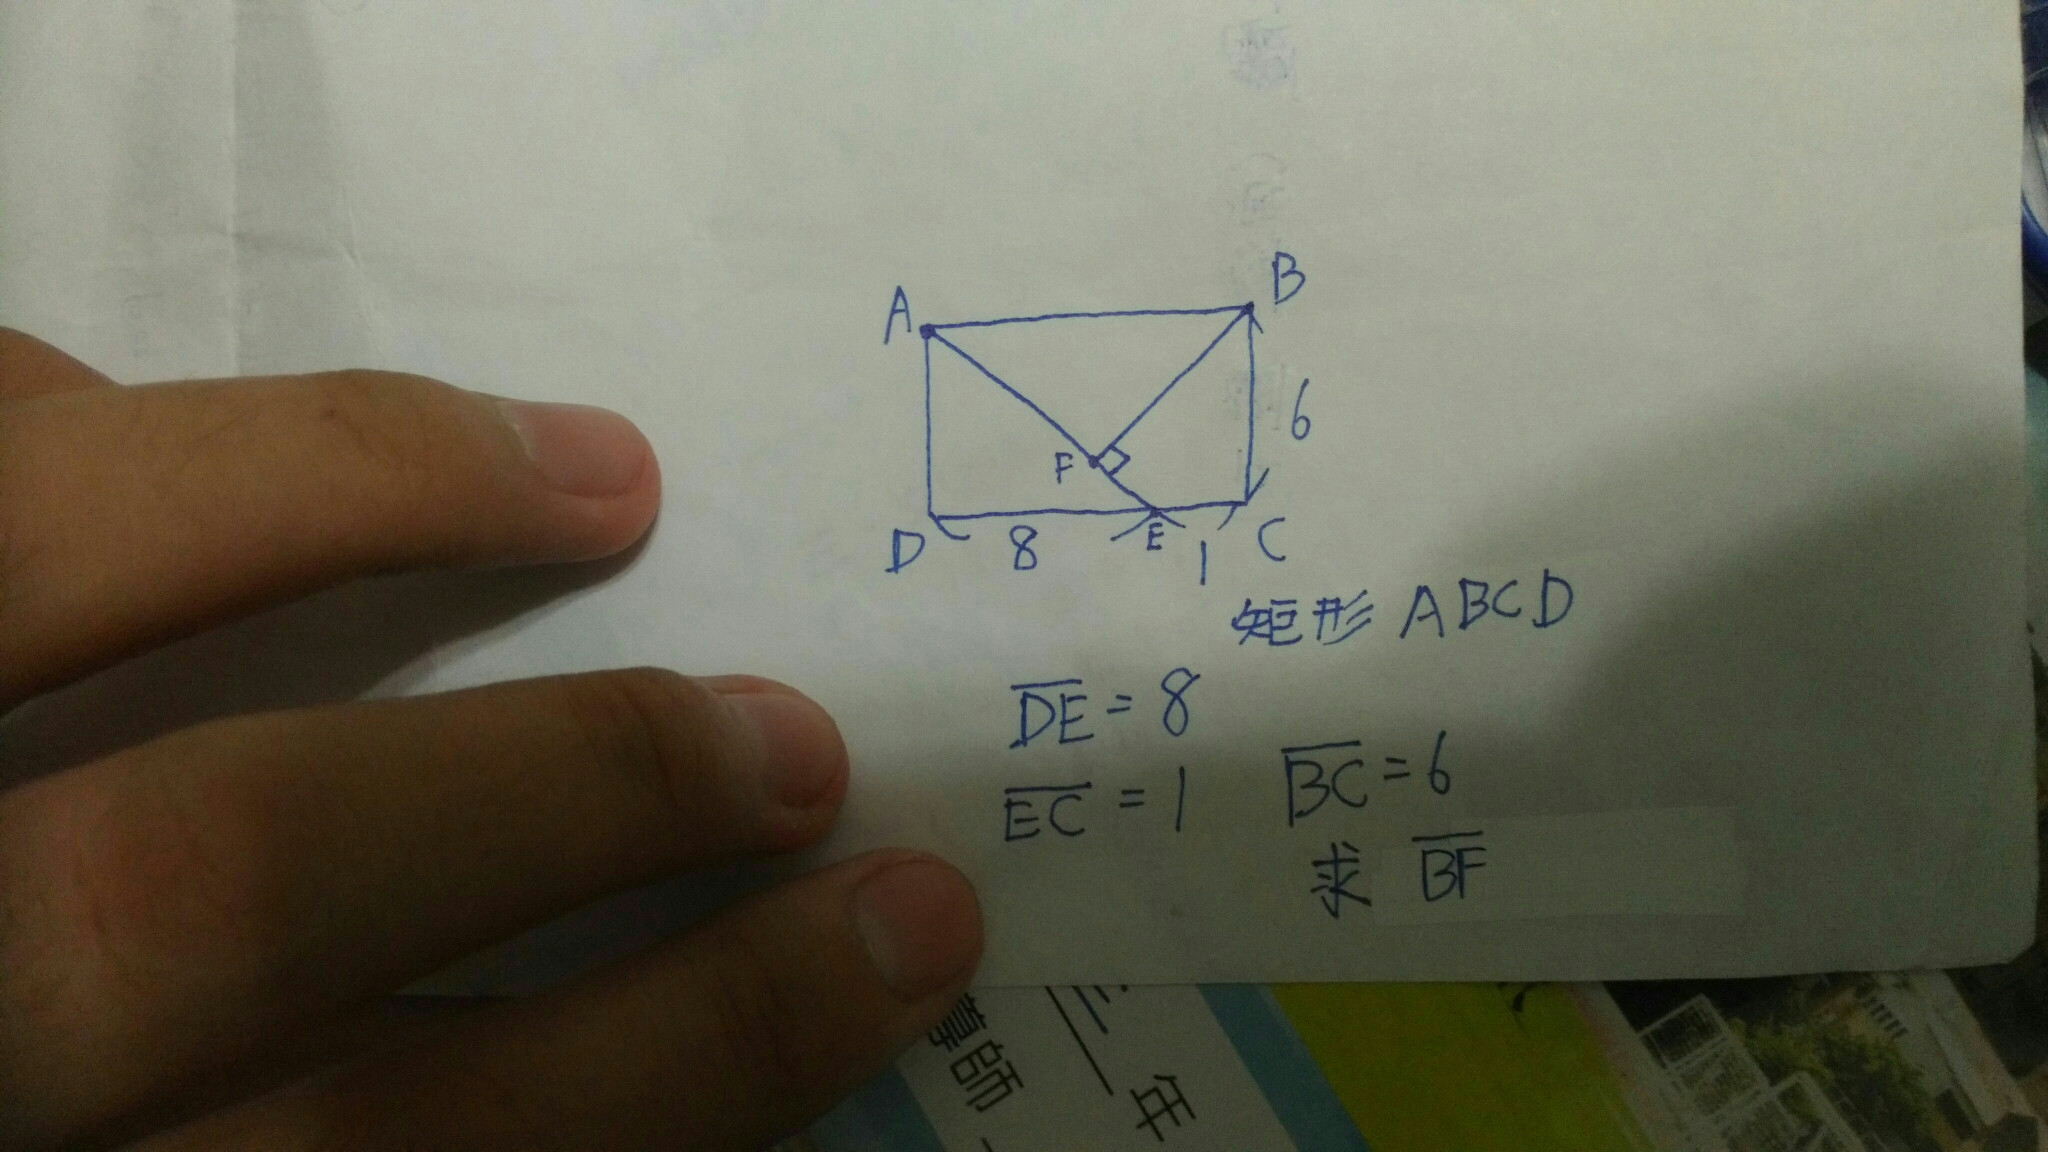 A
B
6
F
D
8
E
1
C
矩形 ABCD
DE = 8
EC = 1
BC = 6
求 BF
年
師